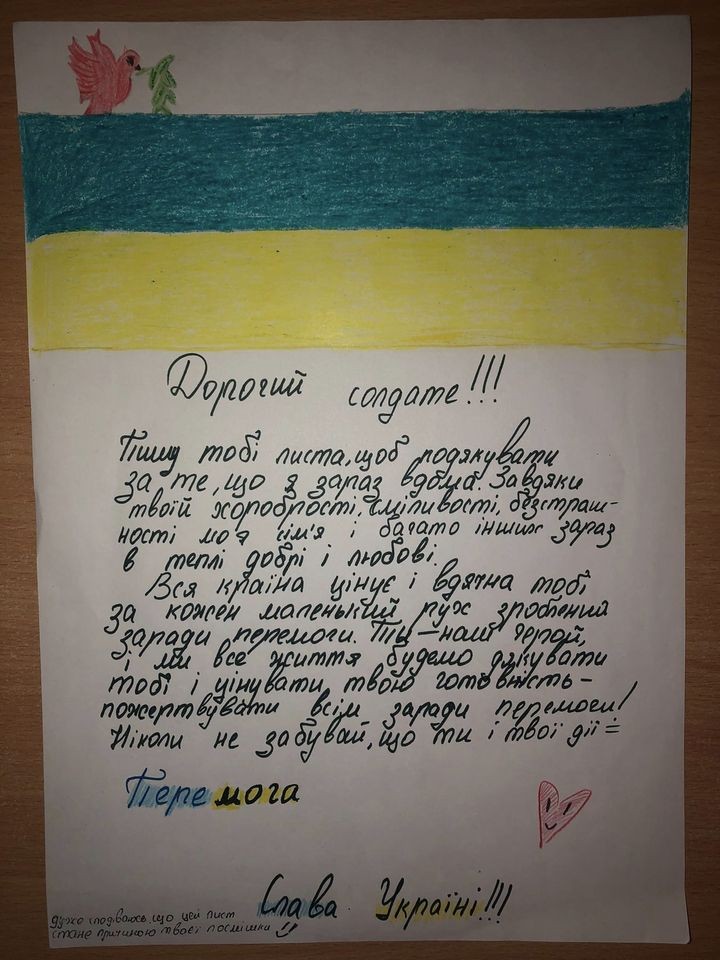 Дорогий солдате!!!
Пишу тобі листа, щоб подякувати
за те, що я зараз вдома. Завдяки
твоїй хоробрості, сміливості, безстраш-
ності моя сім'я і багато інших зараз
в теплі добрі і любові.
Вся країна цінує і вдячна тобі
за кожен маленький рух зроблений
заради перемоги. Ти – наш герой,
і ми все життя будемо дякувати
тобі і цінувати твою готовність –
пожертвувати всім заради перемоги!
Ніколи не забувай, що ти і твої дії =
Перемога
Слава Україні!!!
дуже сподіваюсь, що цей лист
стане причиною твоєї посмішки